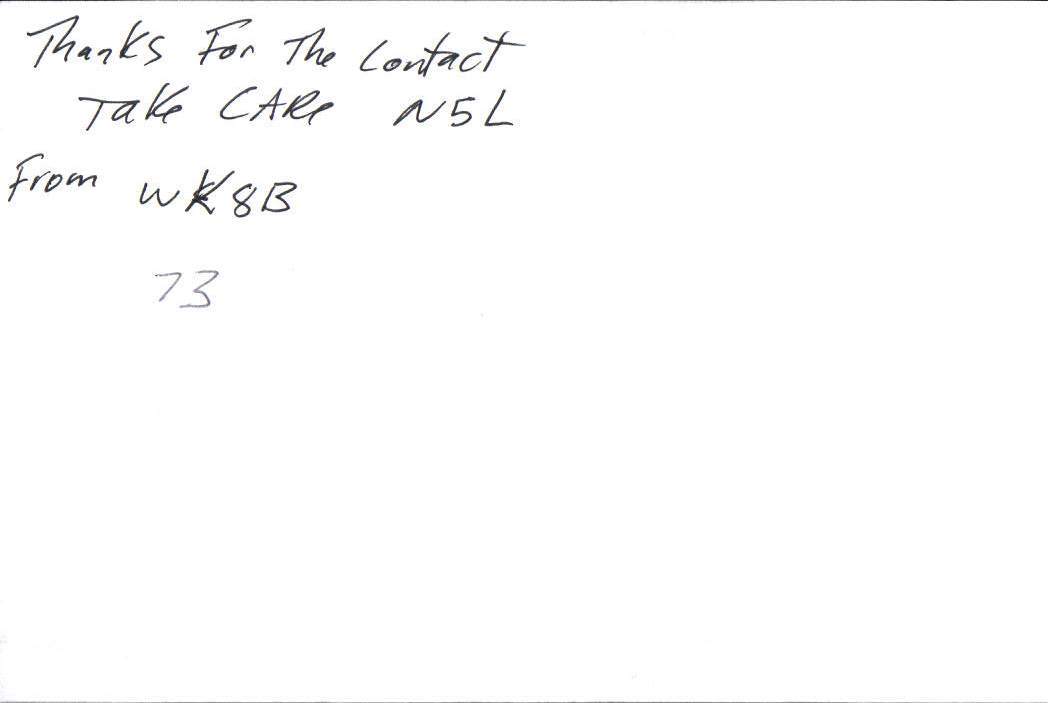 Thanks For The Contact
Take CARe N5L
From WK8B
73